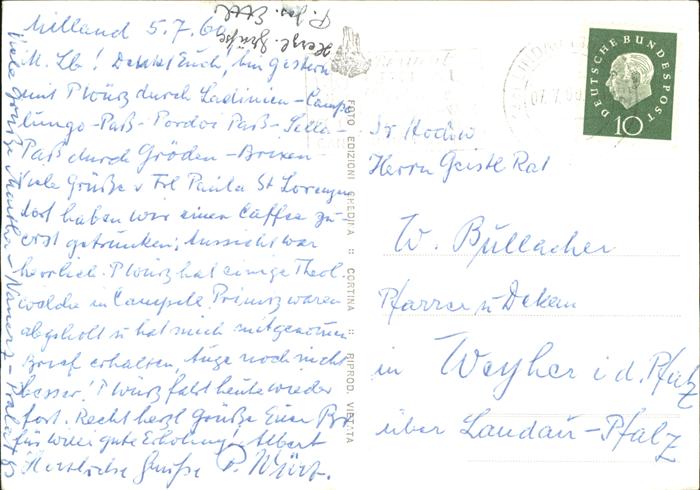 Milland 5.7.60
M. Lb! Denkt Euch, bin gestern
mit P Würz durch Ladinien-Campo
lungo-Paß-Pordoi Paß-Sella-
Paß durch Gröden-Brixen
Viele Grüße v Frl Paula St Lorenzen
dort haben wir einen Caffee zu-
erst getrunken; Aussicht war
herrlich. P Würz hat einige Theol.
welche in waren
abgeholt u hat mich mitgenommen
Brief erhalten, Auge noch nicht
besser! P Würz fährt heute wieder
fort. Recht herzl Grüße Euer Br.
für gute Erholung. Albert
Herzliche Grüße P. Würz.
Viele Grüße
Herzl. Grüße
P. Jos.
FOTO EDIZIONI GHEDINA :: CORTINA :: RIPROD. VIETATA
DEUTSCHE BUNDESPOST
10
07.7.60
Sr Hochw
Herrn Geistl Rat
W. Bullacher
Pfarrer u Dekan
in Weyher i d. Pfalz
über Landau-Pfalz